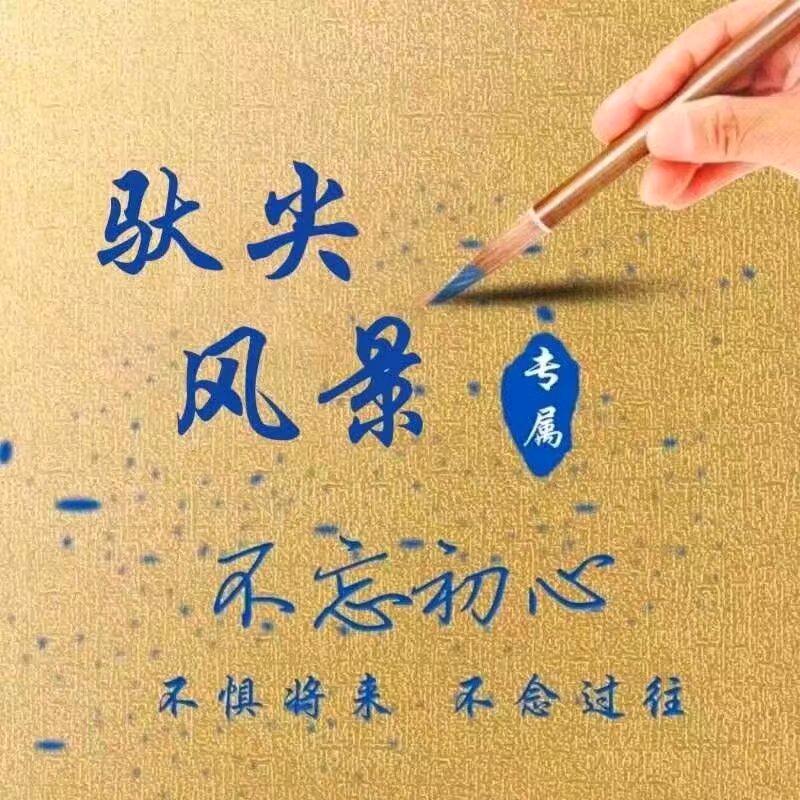 驮尖
风景
专属
不忘初心
不惧将来 不念过往